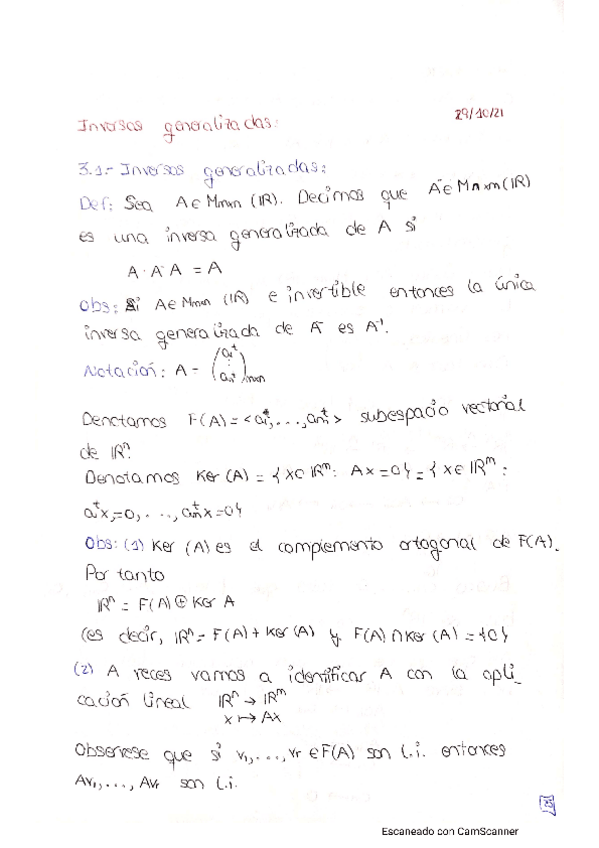 29/10/21
Inversas generalizadas:
3.1.- Inversas generalizadas:
Def: Sea A ∈ Mmxn (IR). Decimos que A⁻ ∈ Mnxm (IR)
es una inversa generalizada de A si
A·A⁻A = A
Obs: Si A ∈ Mmxn (IR) e invertible entonces la única
inversa generalizada de A es A⁻¹.
Notación: A =
Denotamos F(A) = <a₁ᵗ, ..., aₘᵗ> subespacio vectorial
de IRⁿ.
Denotamos Ker (A) = { x ∈ IRᵐ: Ax = 0 } = { x ∈ IRᵐ :
a₁ᵗx = 0, ..., aₘᵗx = 0 }
Obs: (1) Ker (A) es el complemento ortogonal de F(A).
Por tanto
IRⁿ = F(A) ⊕ Ker A
(es decir, IRⁿ = F(A) + Ker (A) y F(A) ∩ Ker (A) = {0}
(2) A veces vamos a identificar A con la apli_
cación lineal IRⁿ → IRᵐ
x ↦ Ax
Observese que si v₁, ..., vr ∈ F(A) son l.i. entonces
Av₁, ..., Avr son l.i.
25
Escaneado con CamScanner